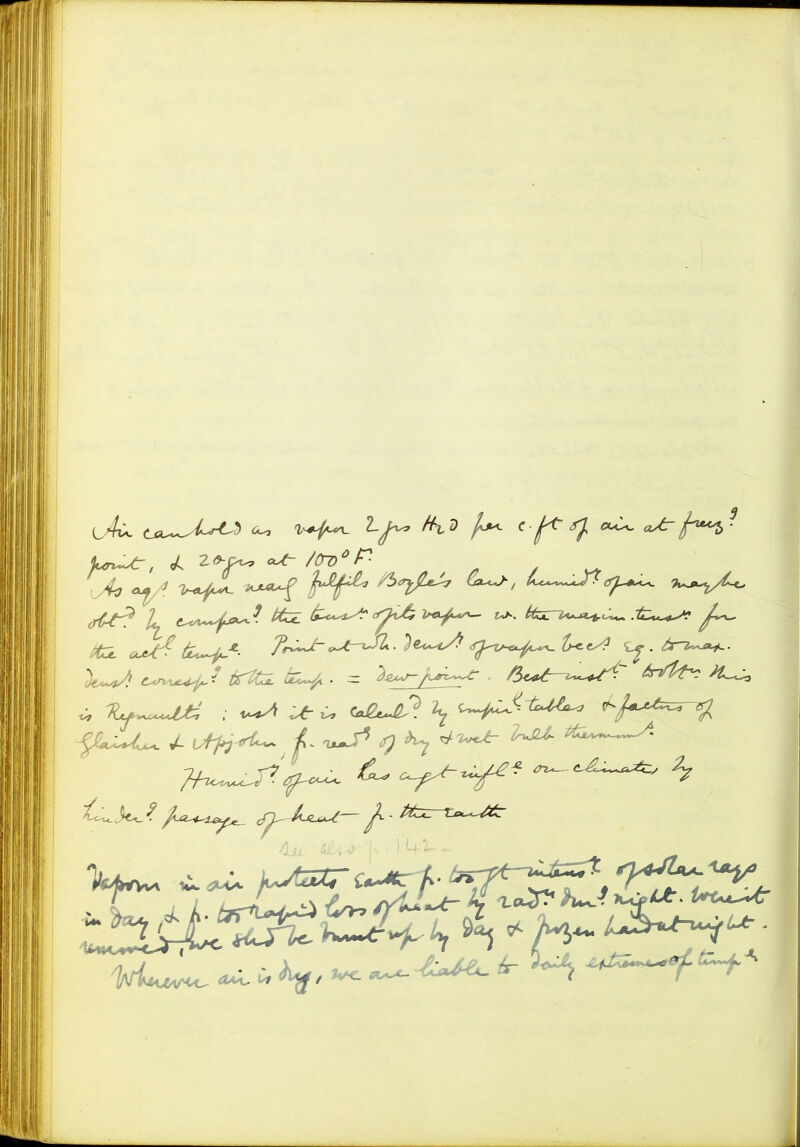 (Air can hold as vapor 2 grs H2O per c. ft of air at freezg
point, & 20 grs at 100° F.
As aqs vapor nearly fulfils Boyle's law, humidy of air may be
obtd by comparg the tensn of its vapor w. the maxim. tensn for
the actl tempe. Point at wh. densy of vapor becs eq. to max.
densy correspg to the temp. = dew-point. Best inst to obtn this
is Regnault's ; usly it is calculd by empirl tables & factors of
Glaisher & Apjohn, fr. readgs of dry & wet bulb thermomrs.
Humidy of air has a gt infle on climate, by
hinderg passage of heat fr. the earth
See also p. 142 -
Vapour in air protects earth fr. too gt intensy of solar rays
in day, & fr. too rapid loss of heat by radn durg night. Were it
removed, we shd be burnt up by day & frozen hard at night.
Wherever air is dry, we are liable to daily extremes of tempe